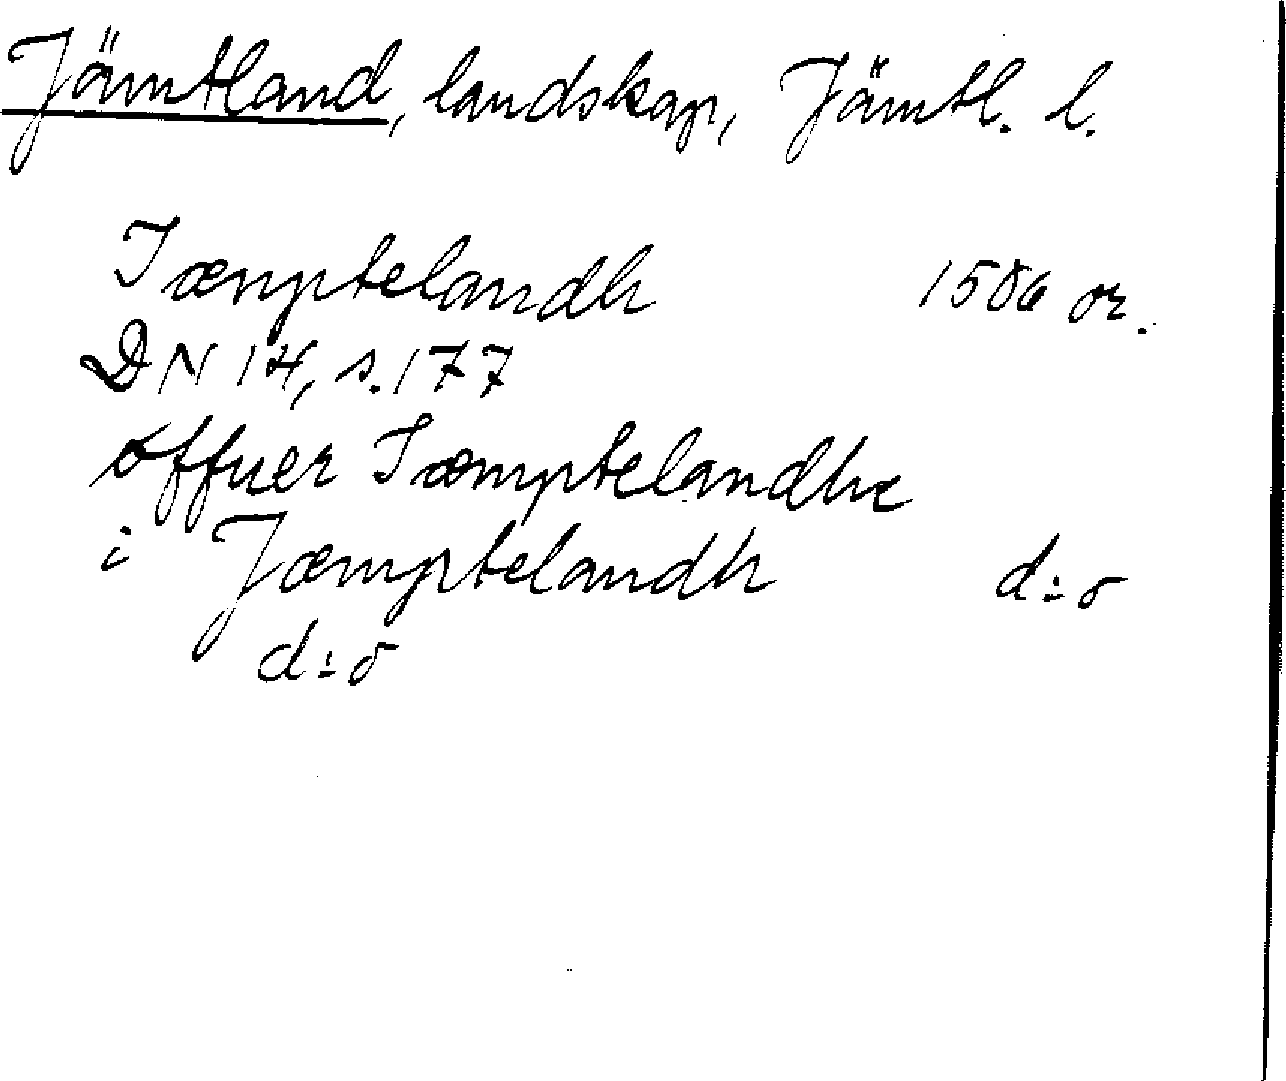 Jämtland, landskap, Jämtl. l.
Iæmptelandh 1506 or.
DN 14, s. 177
offuer Iæmptelandhe
i Jæmptelandh d:o
d:o